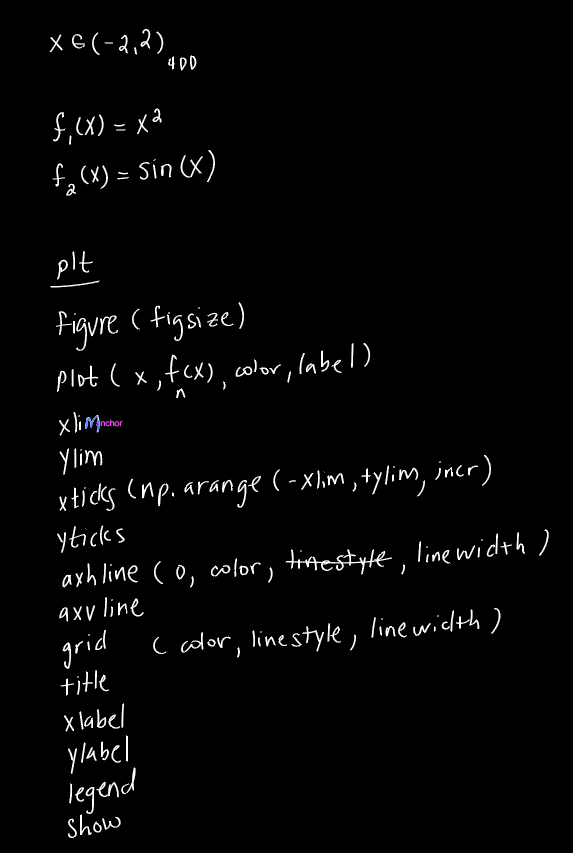 x ∈ (-2,2)₄₀₀
f₁(x) = x²
f₂(x) = sin(x)
plt
figure (figsize)
plot ( x , fₙ(x), color, label)
xlim anchor
ylim
xticks (np. arange (-xlim, +ylim, incr)
yticks
axhline ( 0, color, linestyle, linewidth )
axvline
grid ( color, linestyle, linewidth )
title
xlabel
ylabel
legend
show